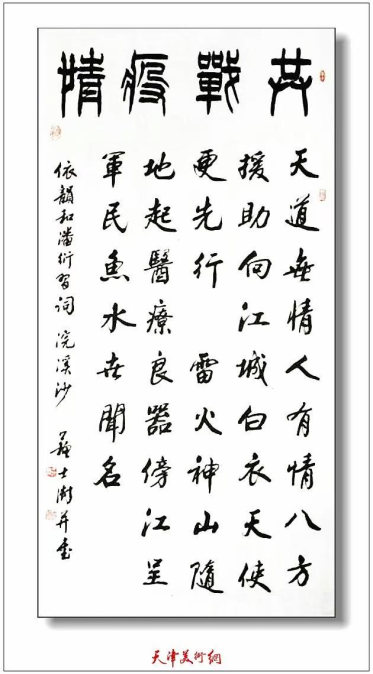 共戰疫情
天道無情人有情八方
援助向江城白衣天使
更先行 雷火神山隨
地起醫療良器傍江呈
軍民魚水世聞名
依韻和潘衍習詞 浣溪沙 蘇士澍并書
天津美術網